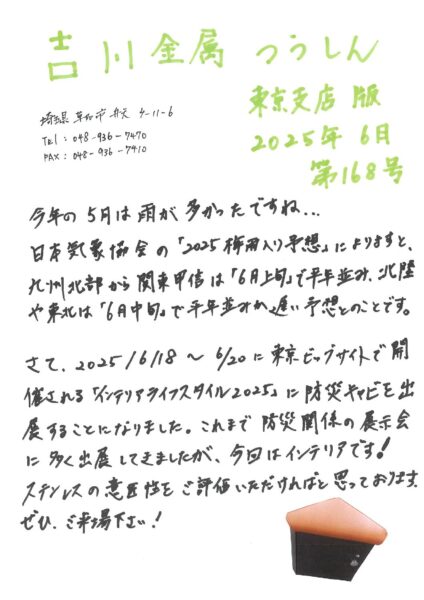 吉川金属 つうしん
東京支店 版
2025年 6月
第168号
埼玉県 草加市 弁天 4-11-6
Tel : 048-936-7470
FAX : 048-936-7410
今年の5月は雨が多かったですね...
日本気象協会の「2025梅雨入り予想」によりますと、
九州北部から関東甲信は「6月上旬」で平年並み、北陸
や東北は「6月中旬」で平年並みか遅い予想とのことです。
さて、2025/6/18～6/20に東京ビッグサイトで開
催される「インテリアライフスタイル2025」に防災キャビを出
展することになりました。これまで防災関係の展示会
に多く出展してきましたが、今回はインテリアです!
ステンレスの意匠性をご評価いただければと思っております。
ぜひ、ご来場下さい!